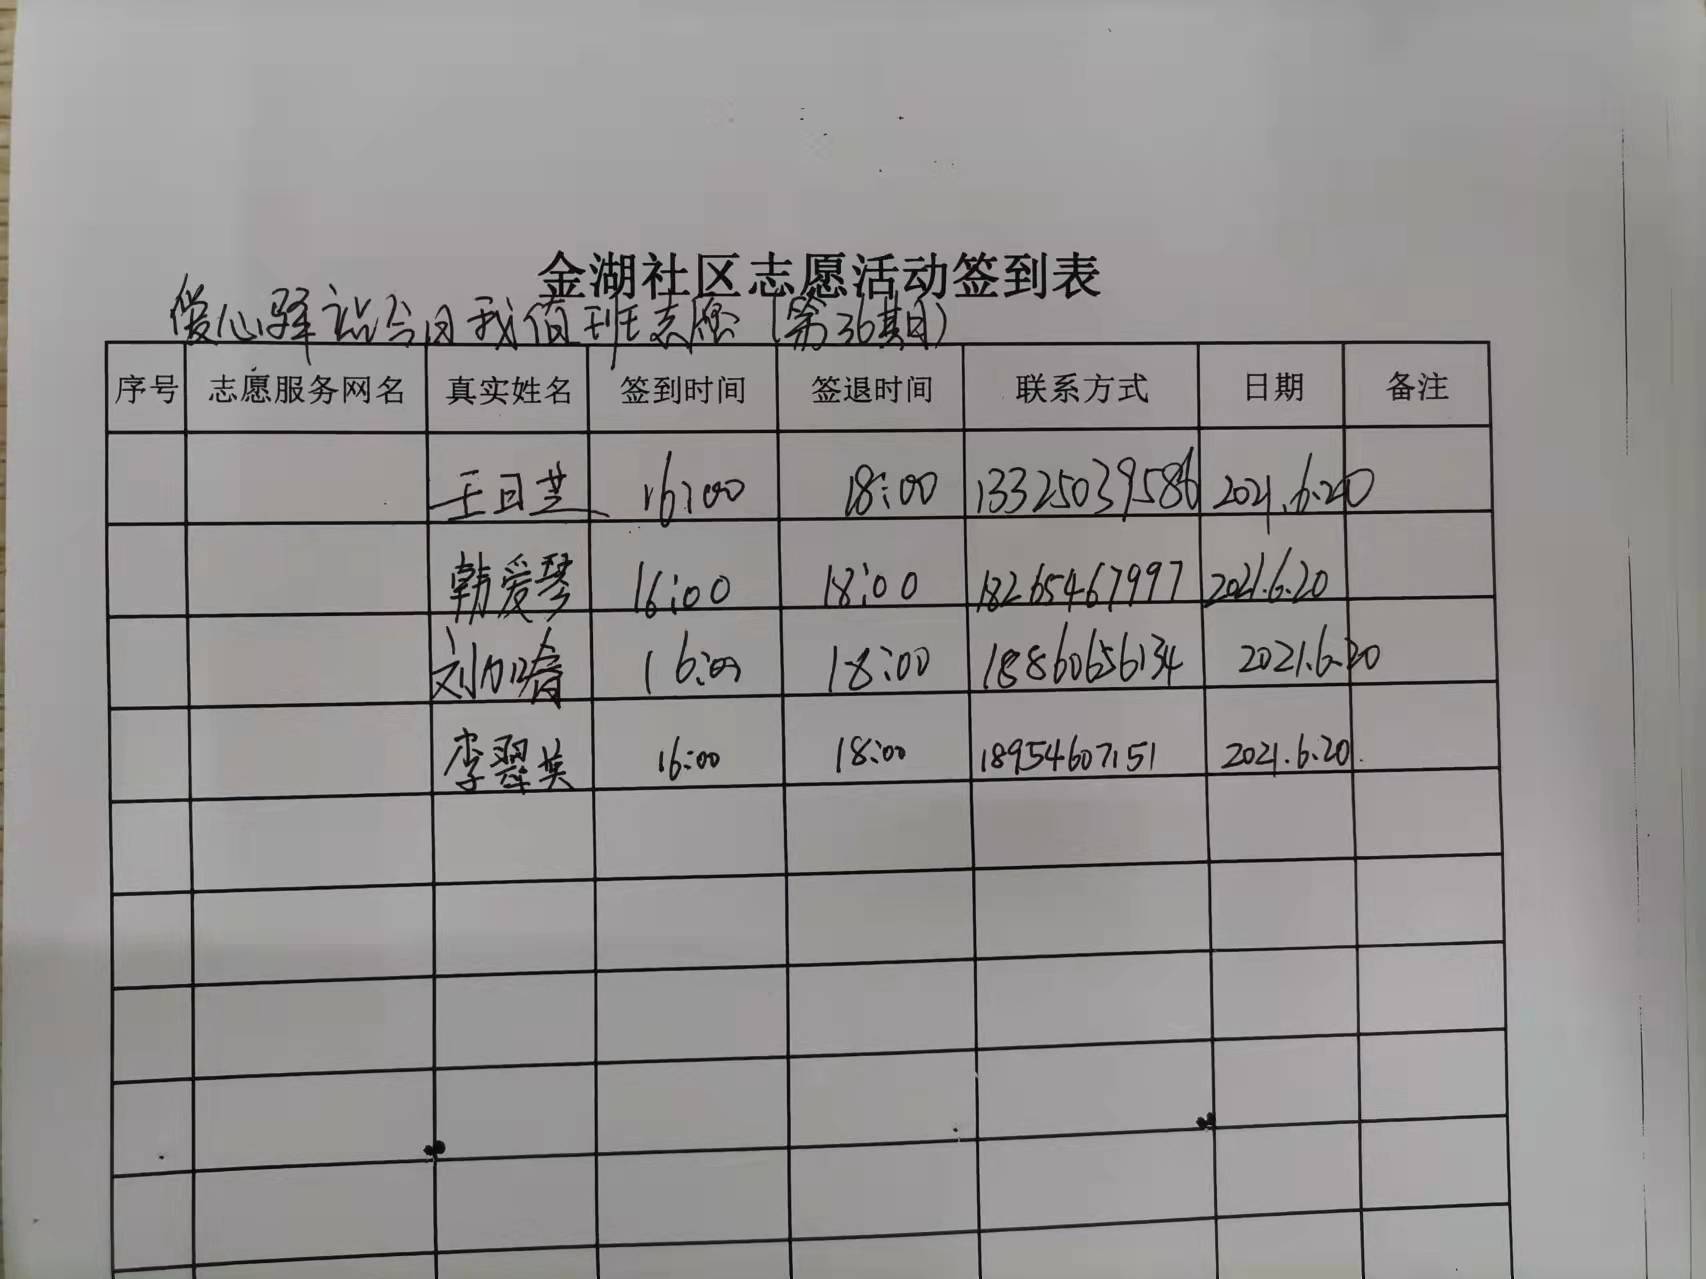 金湖社区志愿活动签到表
爱心驿站今日我值班志愿(第36期)
序号 志愿服务网名 真实姓名 签到时间 签退时间 联系方式 日期 备注
王日芝 16:00 18:00 13325039586 2021.6.20
韩爱琴 16:00 18:00 18265467997 2021.6.20
刘加 16:00 18:00 18860656134 2021.6.20
李翠英 16:00 18:00 18954607151 2021.6.20.